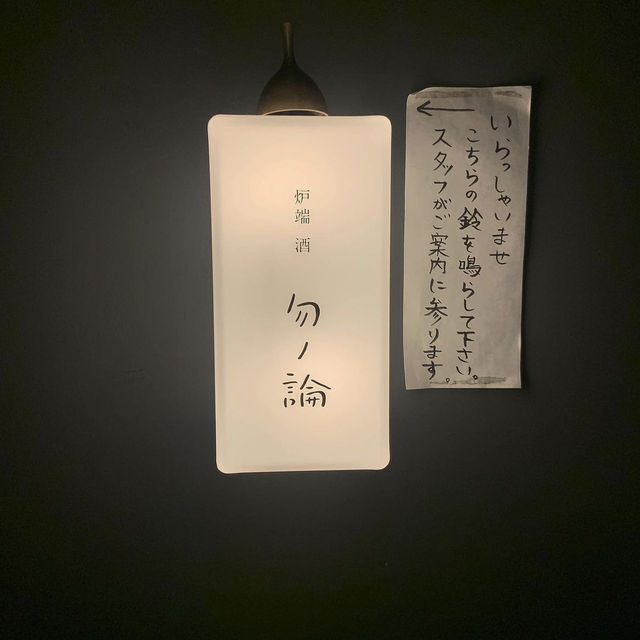 炉端 酒
勿ノ論
いらっしゃいませ
こちらの鈴を鳴らして下さい。
スタッフがご案内に参ります。